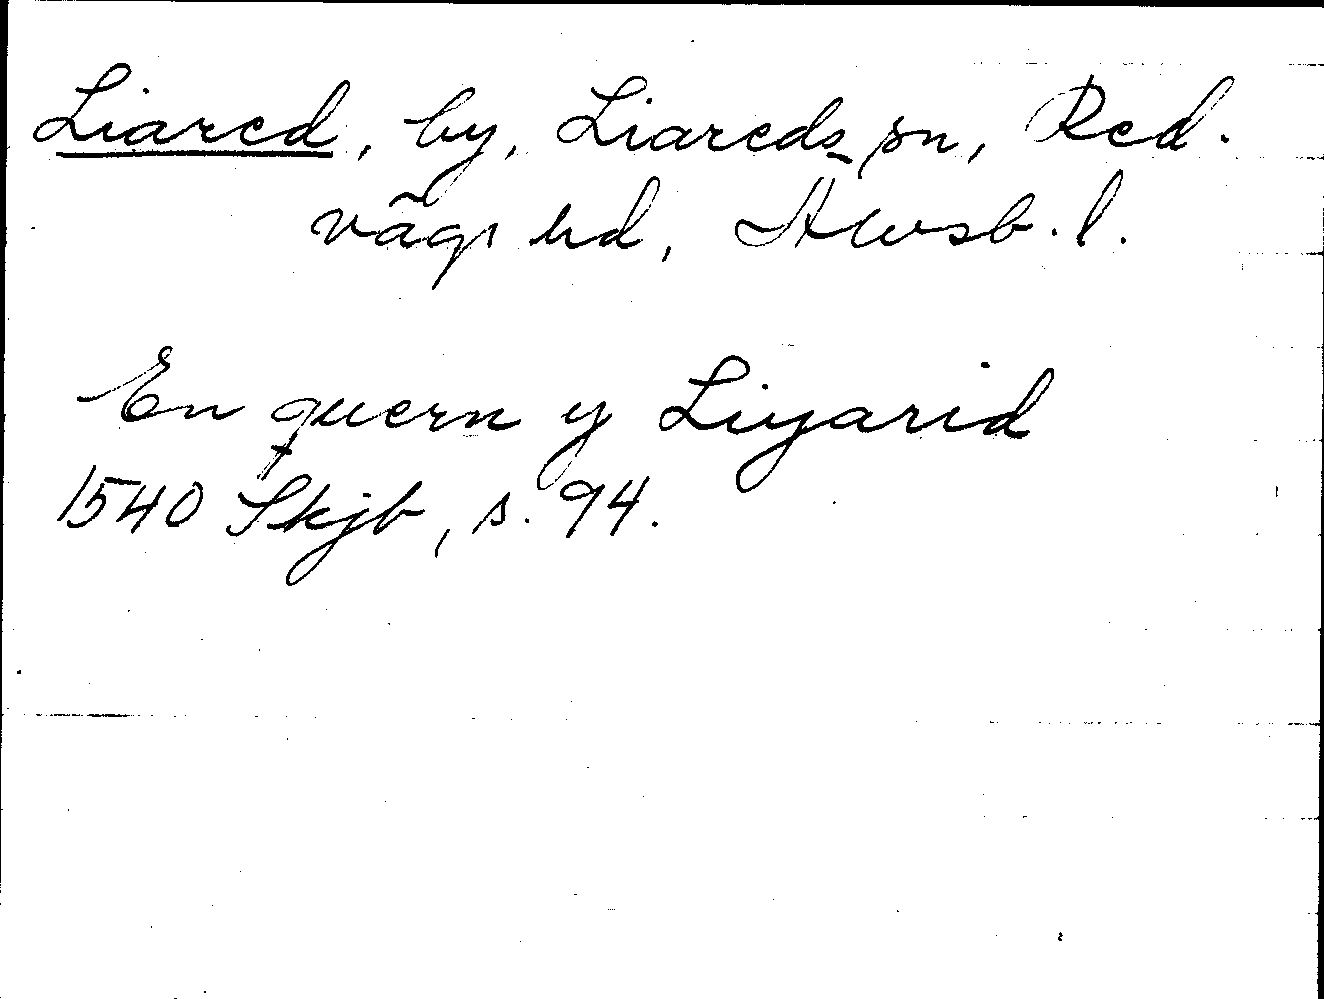 Liared, by, Liareds sn, Red.
vägs hd, Älvsb. l.
En quern y Liyarid
1540 Skjb, s. 94.